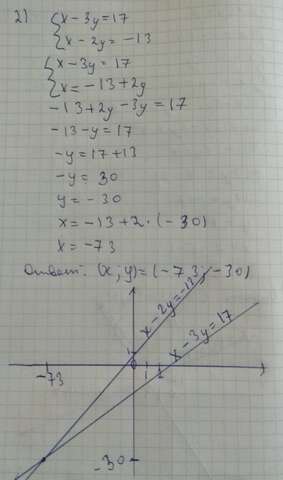 2) { x - 3y = 17
{ x - 2y = -13
{ x - 3y = 17
{ x = -13 + 2y
-13 + 2y - 3y = 17
-13 - y = 17
-y = 17 + 13
-y = 30
y = -30
x = -13 + 2 · (-30)
x = -73
Ответ: (x; y) = (-73; -30)
x - 2y = -13
x - 3y = 17
-73
0
1
-30